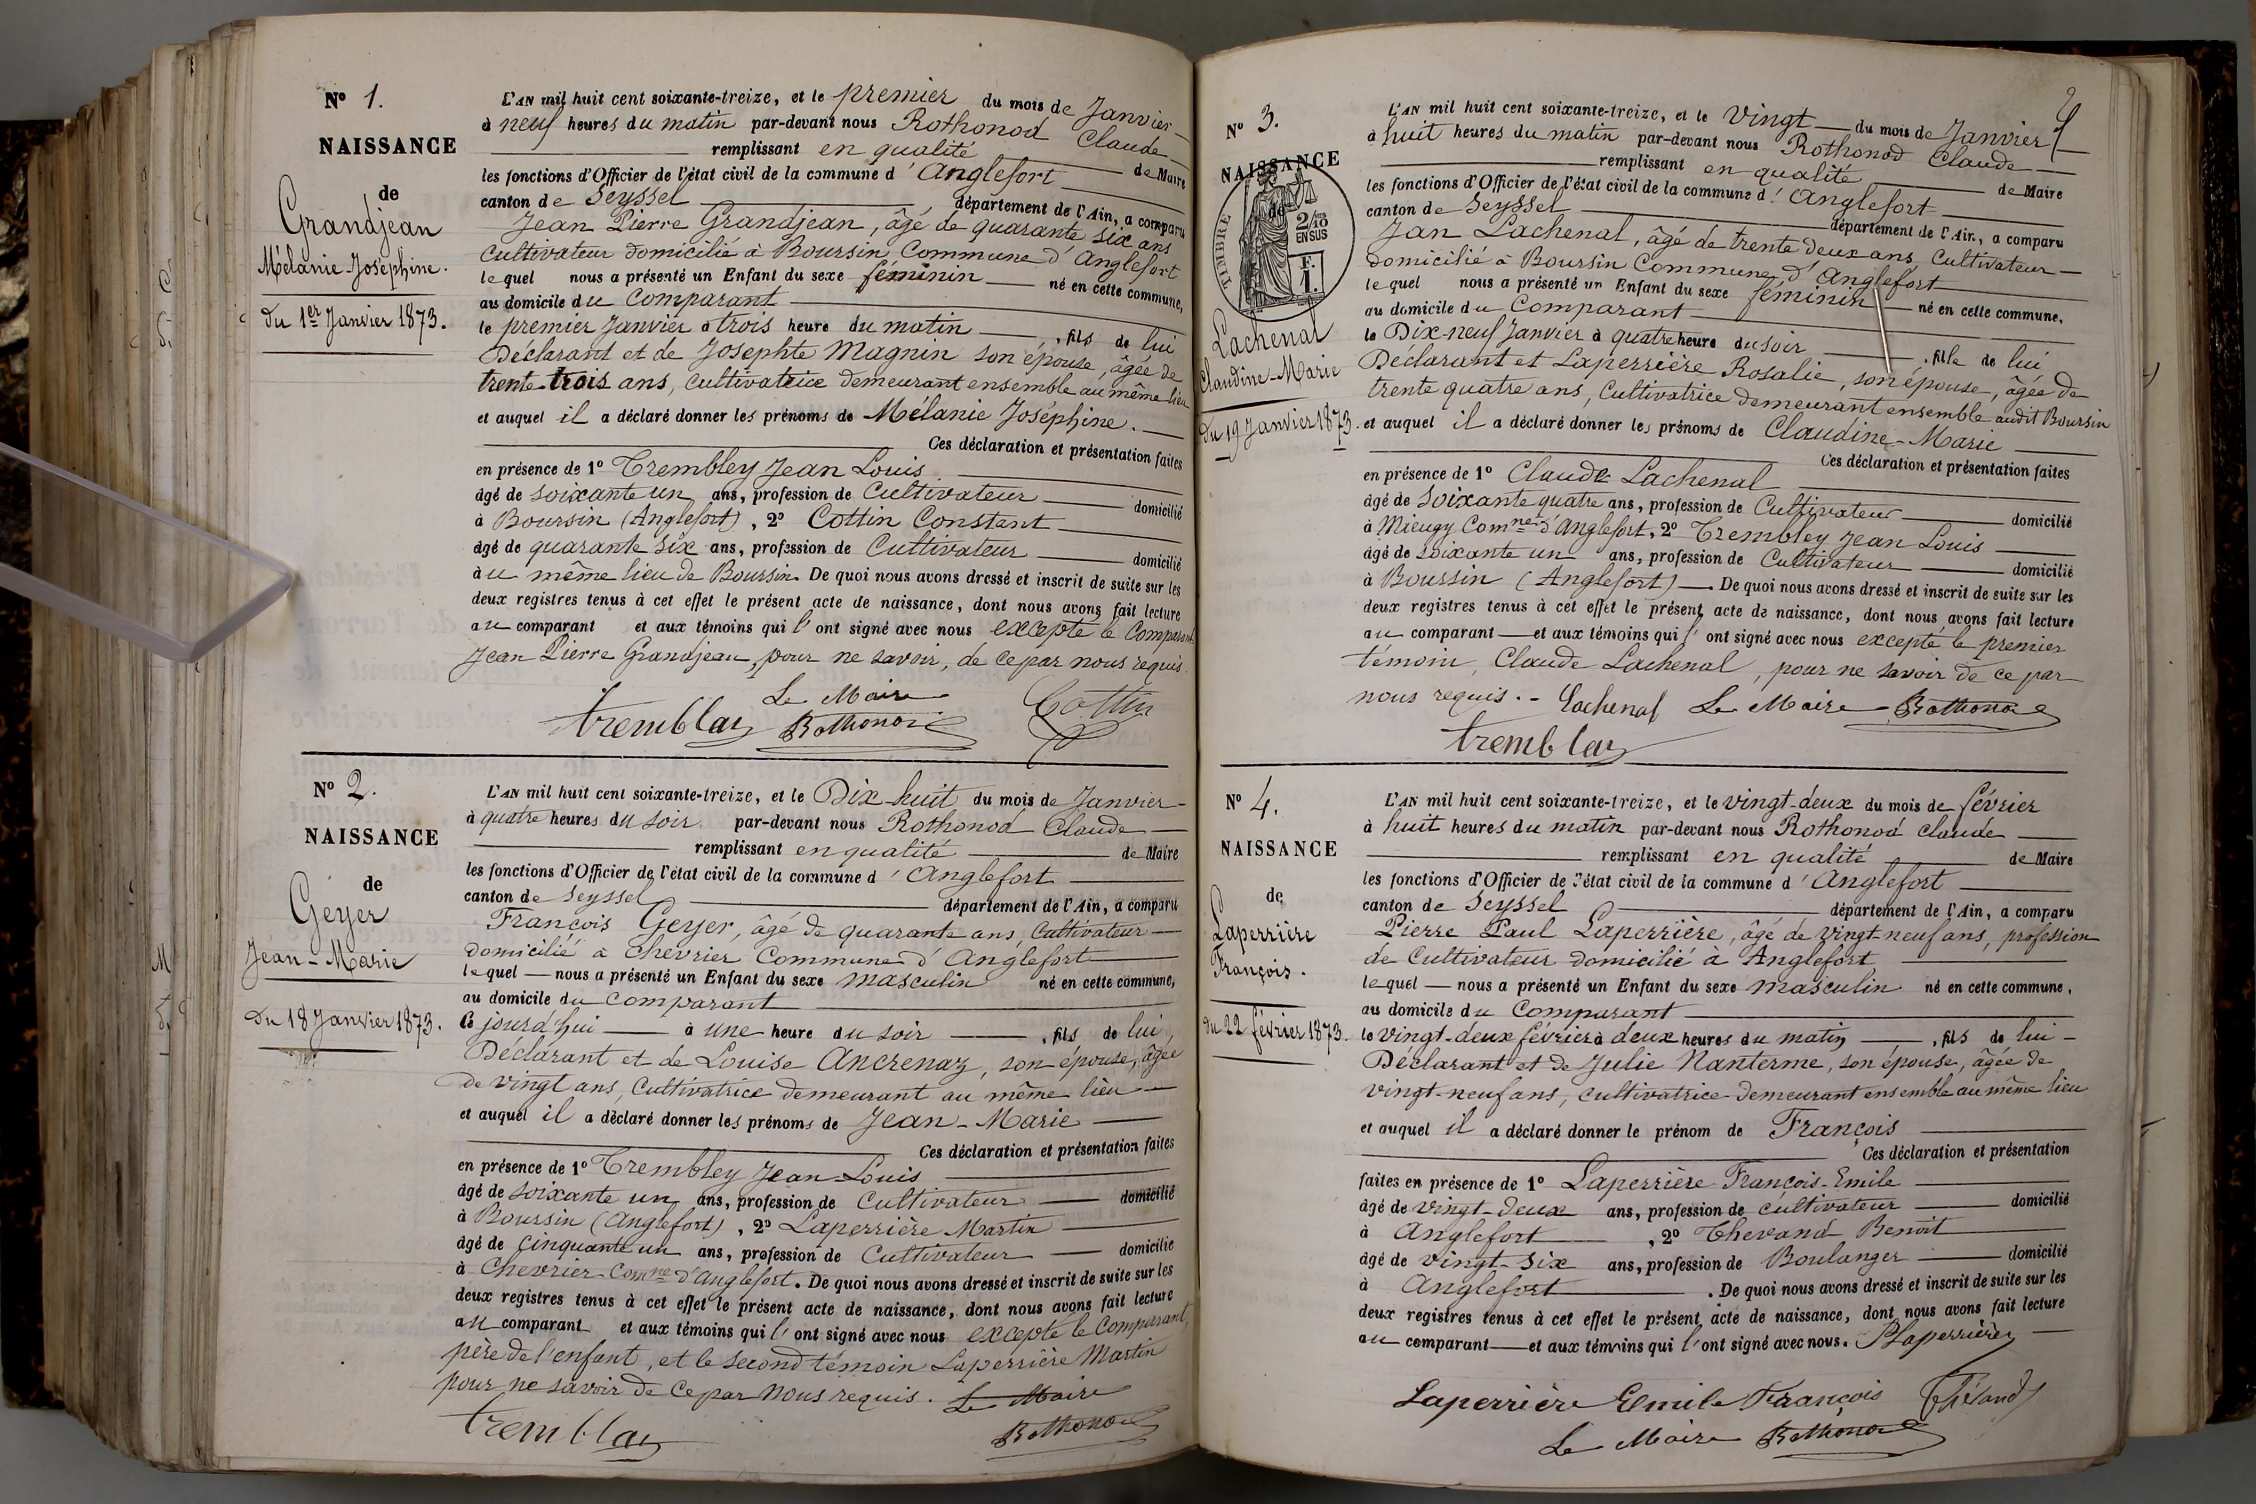 N° 1.
NAISSANCE
de
Grandjean
Mélanie Joséphine.
du 1er Janvier 1873.
L'AN mil huit cent soixante-treize, et le premier du mois de Janvier
à neuf heures du matin par-devant nous Rothonod Claude
remplissant en qualité de Maire
les fonctions d'Officier de l'état civil de la commune d'Anglefort
canton de Seyssel département de l'Ain, a comparu
Jean Pierre Grandjean, âgé de quarante six ans
Cultivateur domicilié à Boursin Commune d'Anglefort
lequel nous a présenté un Enfant du sexe féminin né en cette commune,
au domicile du Comparant
le premier Janvier à trois heure du matin, fils de lui
Déclarant et de Josephte Magnin son épouse, âgée de
trente-trois ans, Cultivatrice demeurant ensemble au même lieu
et auquel il a déclaré donner les prénoms de Mélanie Joséphine.
Ces déclaration et présentation faites
en présence de 1° Trembley Jean Louis
âgé de soixante un ans, profession de Cultivateur domicilié
à Boursin (Anglefort), 2° Cottin Constant
âgé de quarante six ans, profession de Cultivateur domicilié
au même lieu de Boursin. De quoi nous avons dressé et inscrit de suite sur les
deux registres tenus à cet effet le présent acte de naissance, dont nous avons fait lecture
au comparant et aux témoins qui l'ont signé avec nous excepté le Comparant
Jean Pierre Grandjean, pour ne savoir, de ce par nous requis.
Le Maire
Tremblay Rothonod Cottin
N° 2.
NAISSANCE
de
Geyer
Jean-Marie
du 18 Janvier 1873.
L'AN mil huit cent soixante-treize, et le Dix-huit du mois de Janvier
à quatre heures du soir par-devant nous Rothonod Claude
remplissant en qualité de Maire
les fonctions d'Officier de l'état civil de la commune d'Anglefort
canton de Seyssel département de l'Ain, a comparu
François Geyer, âgé de quarante ans, Cultivateur
domicilié à Chevrier Commune d'Anglefort
lequel nous a présenté un Enfant du sexe masculin né en cette commune,
au domicile du comparant
Ce jourd'hui à une heure du soir, fils de lui
Déclarant et de Louise Ancrenaz, son épouse, âgée
de vingt ans, Cultivatrice demeurant au même lieu
et auquel il a déclaré donner les prénoms de Jean-Marie
Ces déclaration et présentation faites
en présence de 1° Trembley Jean-Louis
âgé de soixante un ans, profession de Cultivateur domicilié
à Boursin (Anglefort), 2° Laperrière Martin
âgé de cinquante un ans, profession de Cultivateur domicilié
à Chevrier Comne d'Anglefort. De quoi nous avons dressé et inscrit de suite sur les
deux registres tenus à cet effet le présent acte de naissance, dont nous avons fait lecture
au comparant et aux témoins qui l'ont signé avec nous excepté le Comparant,
père de l'enfant, et le second témoin Laperrière Martin
pour ne savoir de ce par nous requis. Le Maire
Tremblay Rothonod
2
N° 3.
NAISSANCE
de
TIMBRE
2/10
EN SUS
F.
1.
Lachenal
Claudine-Marie
du 19 Janvier 1873.
L'AN mil huit cent soixante-treize, et le Vingt du mois de Janvier
à huit heures du matin par-devant nous Rothonod Claude
remplissant en qualité de Maire
les fonctions d'Officier de l'état civil de la commune d'Anglefort
canton de Seyssel département de l'Ain, a comparu
Jan Lachenal, âgé de trente deux ans, Cultivateur
domicilié à Boursin Commune d'Anglefort
lequel nous a présenté un Enfant du sexe féminin né en cette commune,
au domicile du Comparant
le Dix-neuf Janvier à quatre heure du soir, fille de lui
Déclarant et Laperrière Rosalie, son épouse, âgée de
trente quatre ans, Cultivatrice demeurant ensemble audit Boursin
et auquel il a déclaré donner les prénoms de Claudine-Marie
Ces déclaration et présentation faites
en présence de 1° Claude Lachenal
âgé de soixante quatre ans, profession de Cultivateur domicilié
à Mieugy Comne d'Anglefort, 2° Trembley Jean Louis
âgé de soixante un ans, profession de Cultivateur domicilié
à Boursin (Anglefort). De quoi nous avons dressé et inscrit de suite sur les
deux registres tenus à cet effet le présent acte de naissance, dont nous avons fait lecture
au comparant et aux témoins qui l'ont signé avec nous excepté le premier
témoin, Claude Lachenal, pour ne savoir de ce par
nous requis. - Lachenal Le Maire Rothonod
Tremblay
N° 4.
NAISSANCE
de
Laperrière
François.
du 22 février 1873.
L'AN mil huit cent soixante-treize, et le vingt-deux du mois de février
à huit heures du matin par-devant nous Rothonod Claude
remplissant en qualité de Maire
les fonctions d'Officier de l'état civil de la commune d'Anglefort
canton de Seyssel département de l'Ain, a comparu
Pierre Paul Laperrière, âgé de vingt-neuf ans, profession
de Cultivateur domicilié à Anglefort
lequel nous a présenté un Enfant du sexe masculin né en cette commune,
au domicile du Comparant
le vingt-deux février à deux heures du matin, fils de lui
Déclarant et de Julie Nanterme, son épouse, âgée de
vingt-neuf ans, cultivatrice demeurant ensemble au même lieu
et auquel il a déclaré donner le prénom de François
Ces déclaration et présentation
faites en présence de 1° Laperrière François-Emile
âgé de vingt-deux ans, profession de cultivateur domicilié
à Anglefort, 2° Thevand Benoit
âgé de vingt-six ans, profession de Boulanger domicilié
à Anglefort. De quoi nous avons dressé et inscrit de suite sur les
deux registres tenus à cet effet le présent acte de naissance, dont nous avons fait lecture
au comparant et aux témoins qui l'ont signé avec nous. PLaperrière
Laperrière Emile François Thévand
Le Maire Rothonod